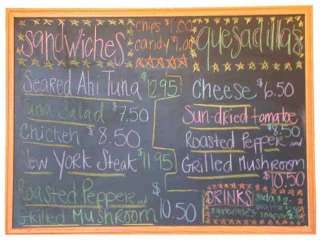 sandwiches
chips $1.00
candy $1.00
quesadillas
Seared Ahi Tuna $12.95
Tuna Salad $7.50
Chicken $8.50
New York Steak $11.95
Roasted Pepper and
Grilled Mushroom $10.50
Cheese $6.50
Sun-dried tomatoe
$8.50
Roasted Pepper and
Grilled Mushroom
$10.50
DRINKS
soda $2